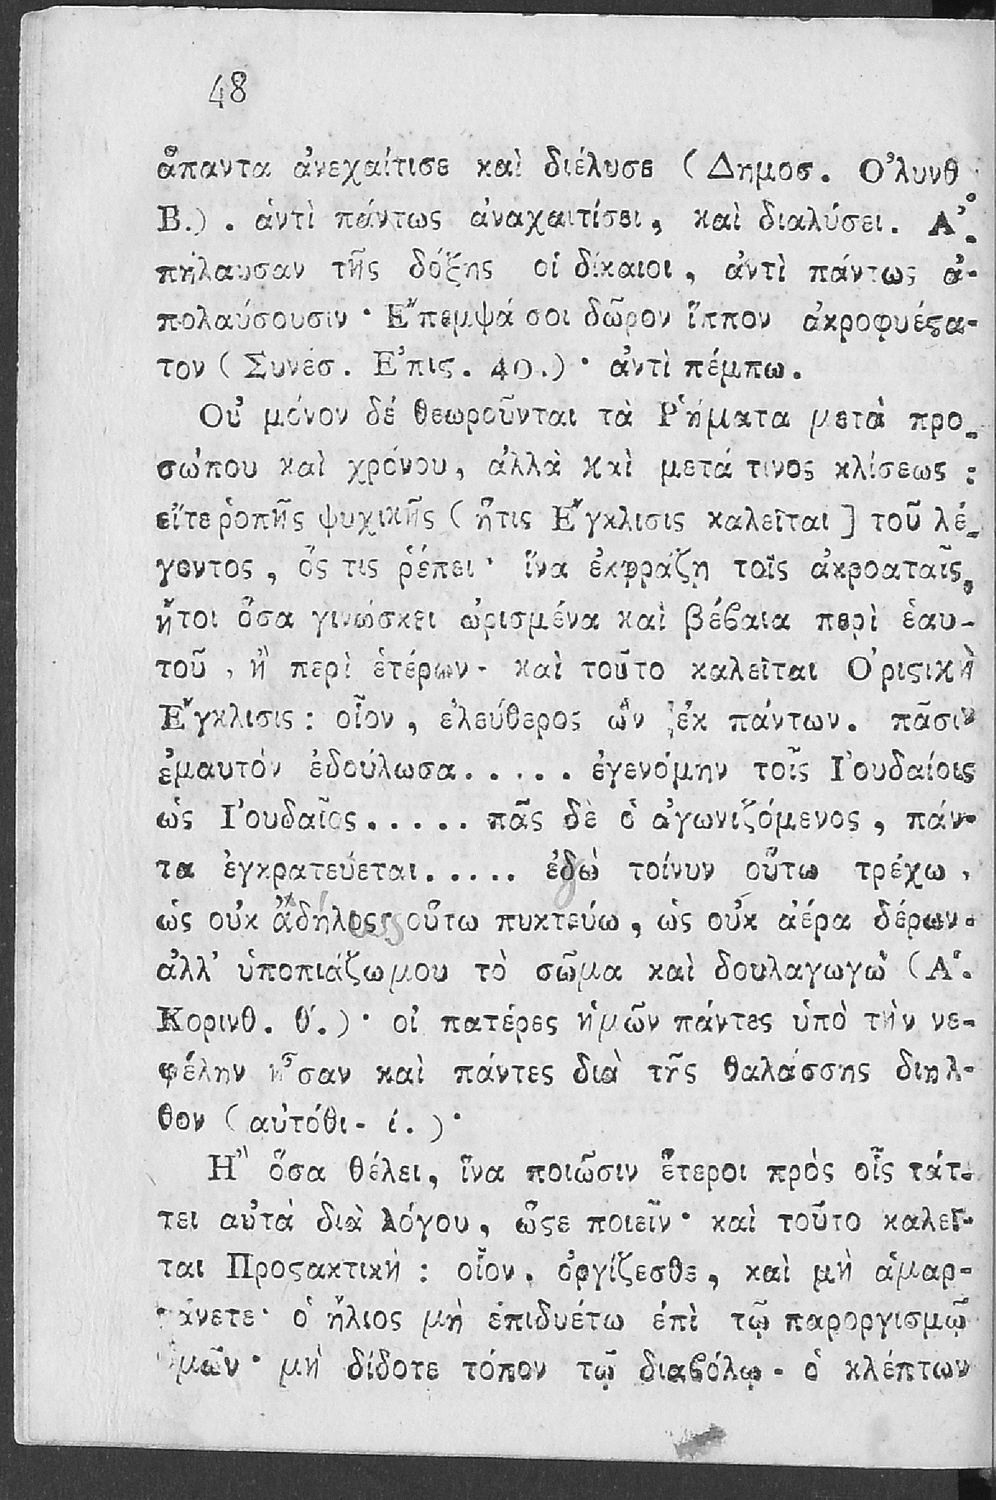 48
ἅπαντα ἀνεχαίτισε καὶ διέλυσε (Δημοσ. Ὀλυνθ.
Β.). ἀντὶ πάντως ἀναχαιτίσει, καὶ διαλύσει. Ἀ-
πήλαυσαν τῆς δόξης οἱ δίκαιοι, ἀντὶ πάντως ἀ-
πολαύσουσιν · Ἔπεμψά σοι δῶρον ἵππον ἀκροφυέϛα-
τον (Συνέσ. Ἐπιϛ. 40.) · ἀντὶ πέμπω.
Οὐ μόνον δέ θεωροῦνται τὰ Ῥήματα μετὰ προ-
σώπου καὶ χρόνου, ἀλλὰ καὶ μετά τινος κλίσεως :
εἴτε ῥοπῆς ψυχικῆς (ἥτις Ἔγκλισις καλεῖται] τοῦ λέ-
γοντος, ὅς τις ῥέπει · ἵνα ἐκφράζῃ τοῖς ἀκροαταῖς,
ἤτοι ὅσα γινώσκει ὡρισμένα καὶ βέβαια περὶ ἑαυ-
τοῦ, ἢ περὶ ἑτέρων - καὶ τοῦτο καλεῖται Ὁριϛικὴ
Ἔγκλισις : οἷον, ἐλεύθερος ὢν ἐκ πάντων. πᾶσιν
ἐμαυτὸν ἐδούλωσα..... ἐγενόμην τοῖς Ἰουδαίοις
ὡς Ἰουδαῖος..... πᾶς δὲ ὁ ἀγωνιζόμενος, πάν-
τα ἐγκρατεύεται..... ἐδὼ τοίνυν οὕτω τρέχω,
ὡς οὐκ ἄδήλος οὕτω πυκτεύω, ὡς οὐκ ἀέρα δέρων.
ἀλλ' ὑποπιάζωμου τὸ σῶμα καὶ δουλαγωγῶ (Α΄.
Κορινθ. θ΄.) · οἱ πατέρες ἡμῶν πάντες ὑπὸ τὴν νε-
φέλην ἦσαν καὶ πάντες διὰ τῆς θαλάσσης διηλ-
θον (αὐτόθι - ί.) ·
Ἢ ὅσα θέλει, ἵνα ποιῶσιν ἕτεροι πρὸς οἷς τάτ-
τει αὐτὰ διὰ λόγου, ὥϛε ποιεῖν · καὶ τοῦτο καλεῖ-
ται Προϛακτικὴ : οἷον, ὀργίζεσθε, καὶ μὴ ἁμαρ-
τάνετε · ὁ ἥλιος μὴ ἐπιδυέτω ἐπὶ τῷ παροργισμῷ
ὑμῶν · μὴ δίδοτε τόπον τῷ διαβόλῳ - ὁ κλέπτων